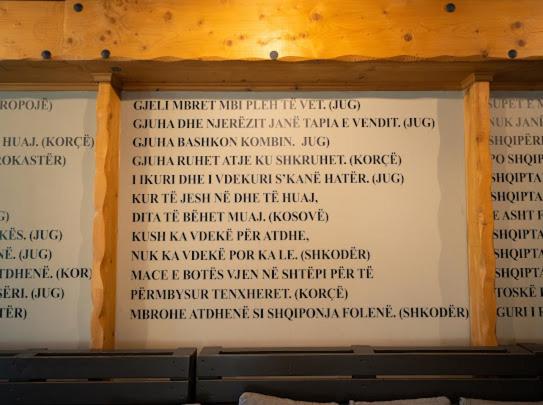 ROPOJË)
HUAJ. (KORÇË)
ROKASTËR)
G)
KËS. (JUG)
NË. (JUG)
TDHENË. (KOR)
SËRI. (JUG)
TËR)
GJELI MBRET MBI PLEH TË VET. (JUG)
GJUHA DHE NJERËZIT JANË TAPIA E VENDIT. (JUG)
GJUHA BASHKON KOMBIN. JUG)
GJUHA RUHET ATJE KU SHKRUHET. (KORÇË)
I IKURI DHE I VDEKURI S'KANË HATËR. (JUG)
KUR TË JESH NË DHE TË HUAJ,
DITA TË BËHET MUAJ. (KOSOVË)
KUSH KA VDEKË PËR ATDHE,
NUK KA VDEKË POR KA LE. (SHKODËR)
MACE E BOTËS VJEN NË SHTËPI PËR TË
PËRMBYSUR TENXHERET. (KORÇË)
MBROHE ATDHENË SI SHQIPONJA FOLENË. (SHKODËR)
SUPET E M
NUK JANË
SHQIPËRI
PO SHQIP
SHQIPTA
SHQIPTA
E ASHT F
SHQIPTA
SHQIPTA
SHQIPTA
TOSKË
GURI I F